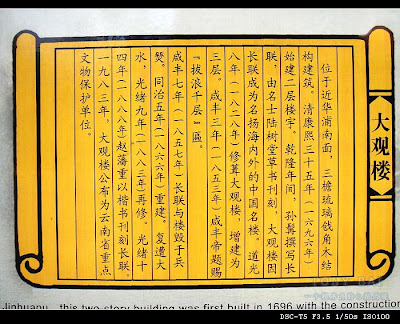 大观楼
位于近华浦南面，三檐琉璃戗角木结
构建筑。清康熙三十五年（一六九六年）
始建二层楼宇。乾隆年间，孙髯撰写长
联，由名士陆树堂草书刊刻，大观楼因
长联成为名扬海内外的中国名楼。道光
八年（一八二八年）修葺大观楼，增建为
三层。咸丰三年（一八五三年）咸丰帝题赐
“拔浪千层”匾。
咸丰七年（一八五七年）长联与楼毁于兵
燹。同治五年（一八六六年）重建。复遭大
水，光绪九年（一八八三年）再修。光绪十
四年（一八八八年）赵藩重以楷书刊刻长联。
一九八三年，大观楼公布为云南省重点
文物保护单位。
this two-story building was first built in 1696 with the construction
DSC-T5 F3.5 1/50s ISO100